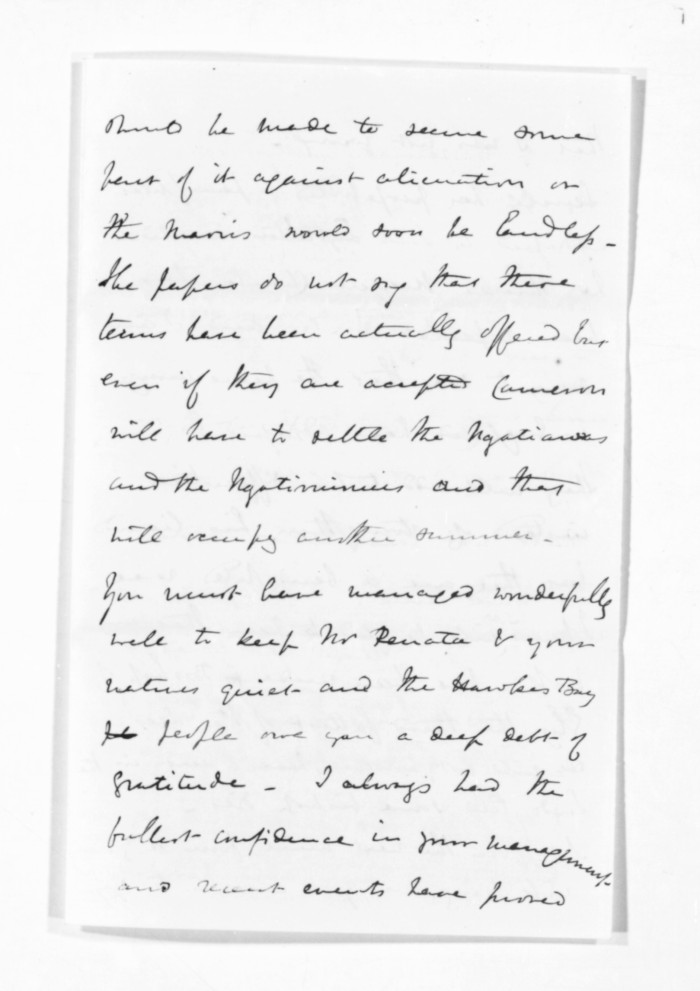 should be made to secure some
part of it against alienation or
the Maoris would soon be landless -
The papers do not say that these
terms have been actually offered but
even if they are accepted Cameron
will have to settle the Ngatiawas
and the Ngatiruanuis and that
will occupy another summer -
You must have managed wonderfully
well to keep Mr Renata & your
natives quiet and the Hawkes Bay
people owe you a deep debt of
gratitude - I always had the
fullest confidence in your management
and recent events have proved